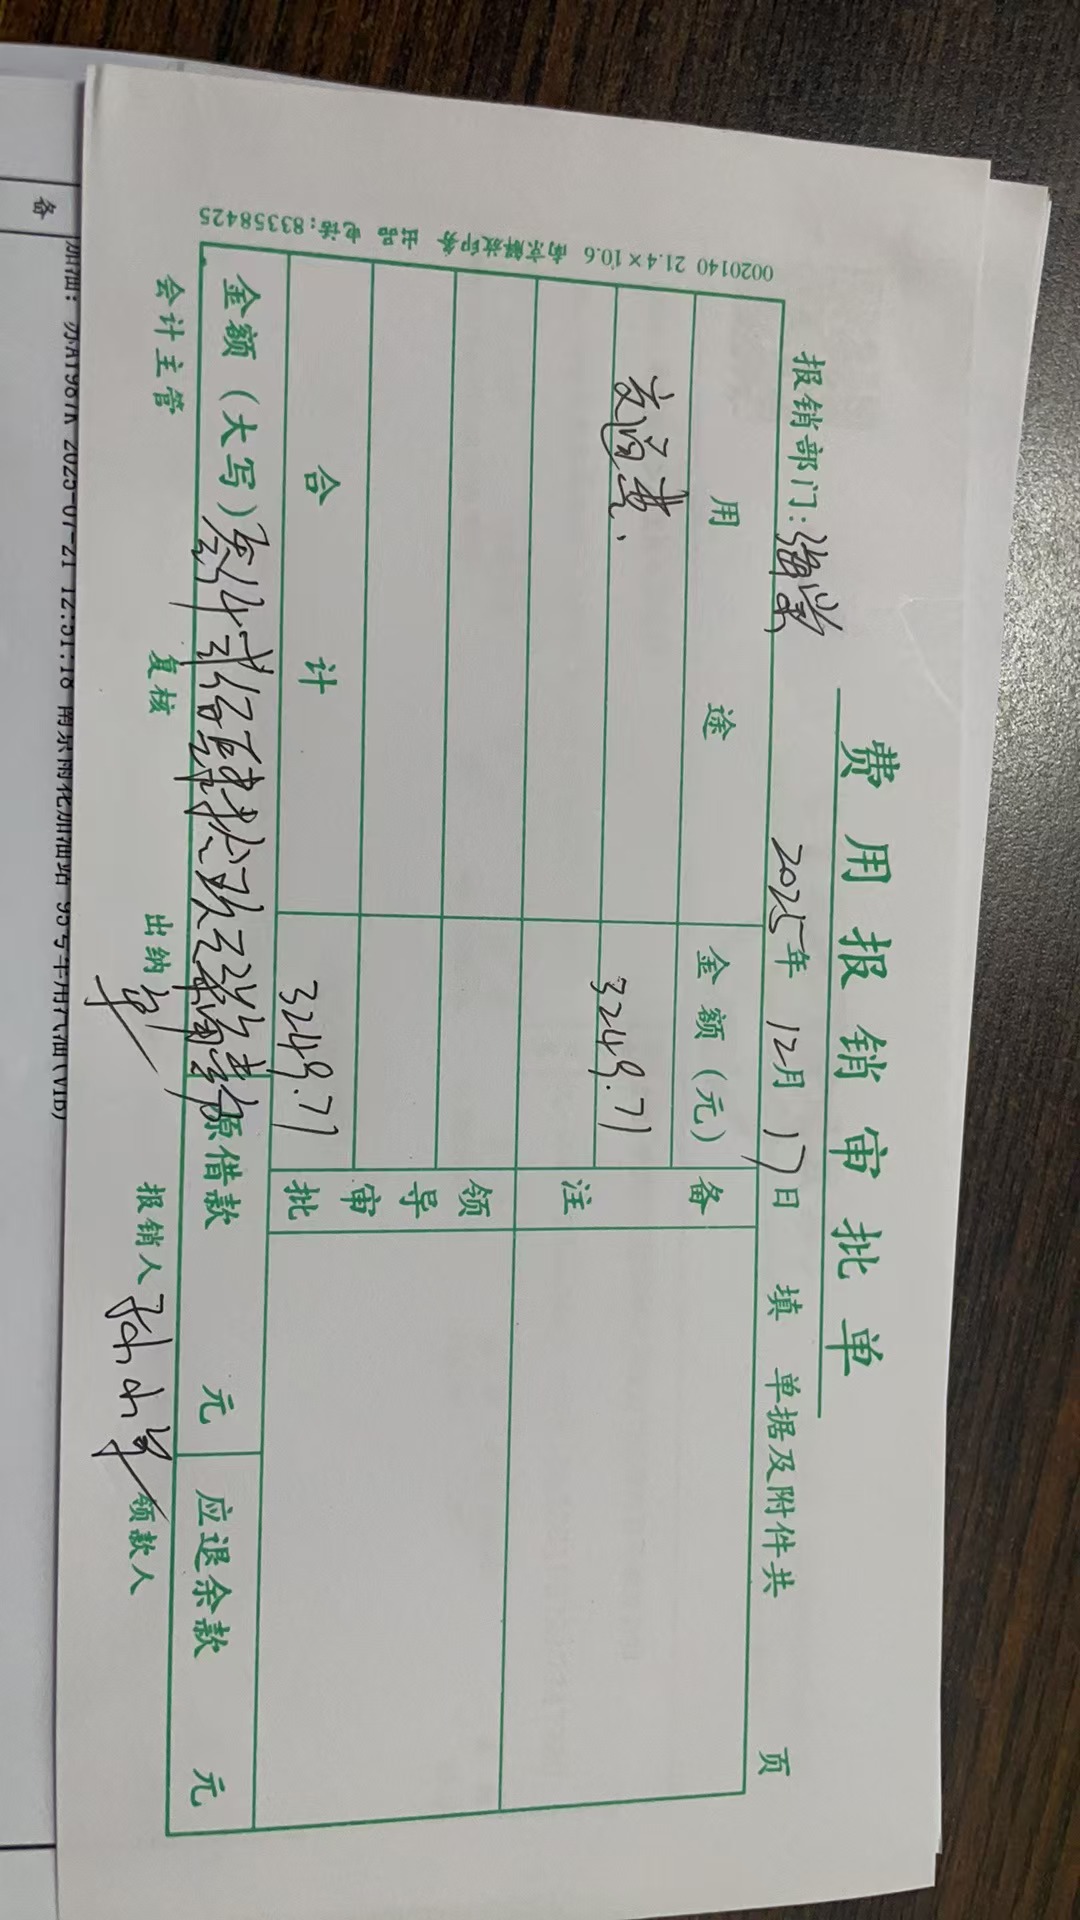 费用报销审批单
报销部门:
2025年 12月 17日 填 单据及附件共 页
用 途 金额(元) 备注
交通费. 3249.71
领导审批
合 计 3249.71
金额(大写)叁仟贰佰肆拾玖元柒角壹分 原借款 元 应退余款 元
会计主管 复核 出纳 报销人 领款人
0020140 21.4×10.6 南京解放印务 出品 电话:83358425
备
加油: 苏A1987K 2025-07-21 12:51:18 南京雨花加油站 95号车用汽油(VIB)